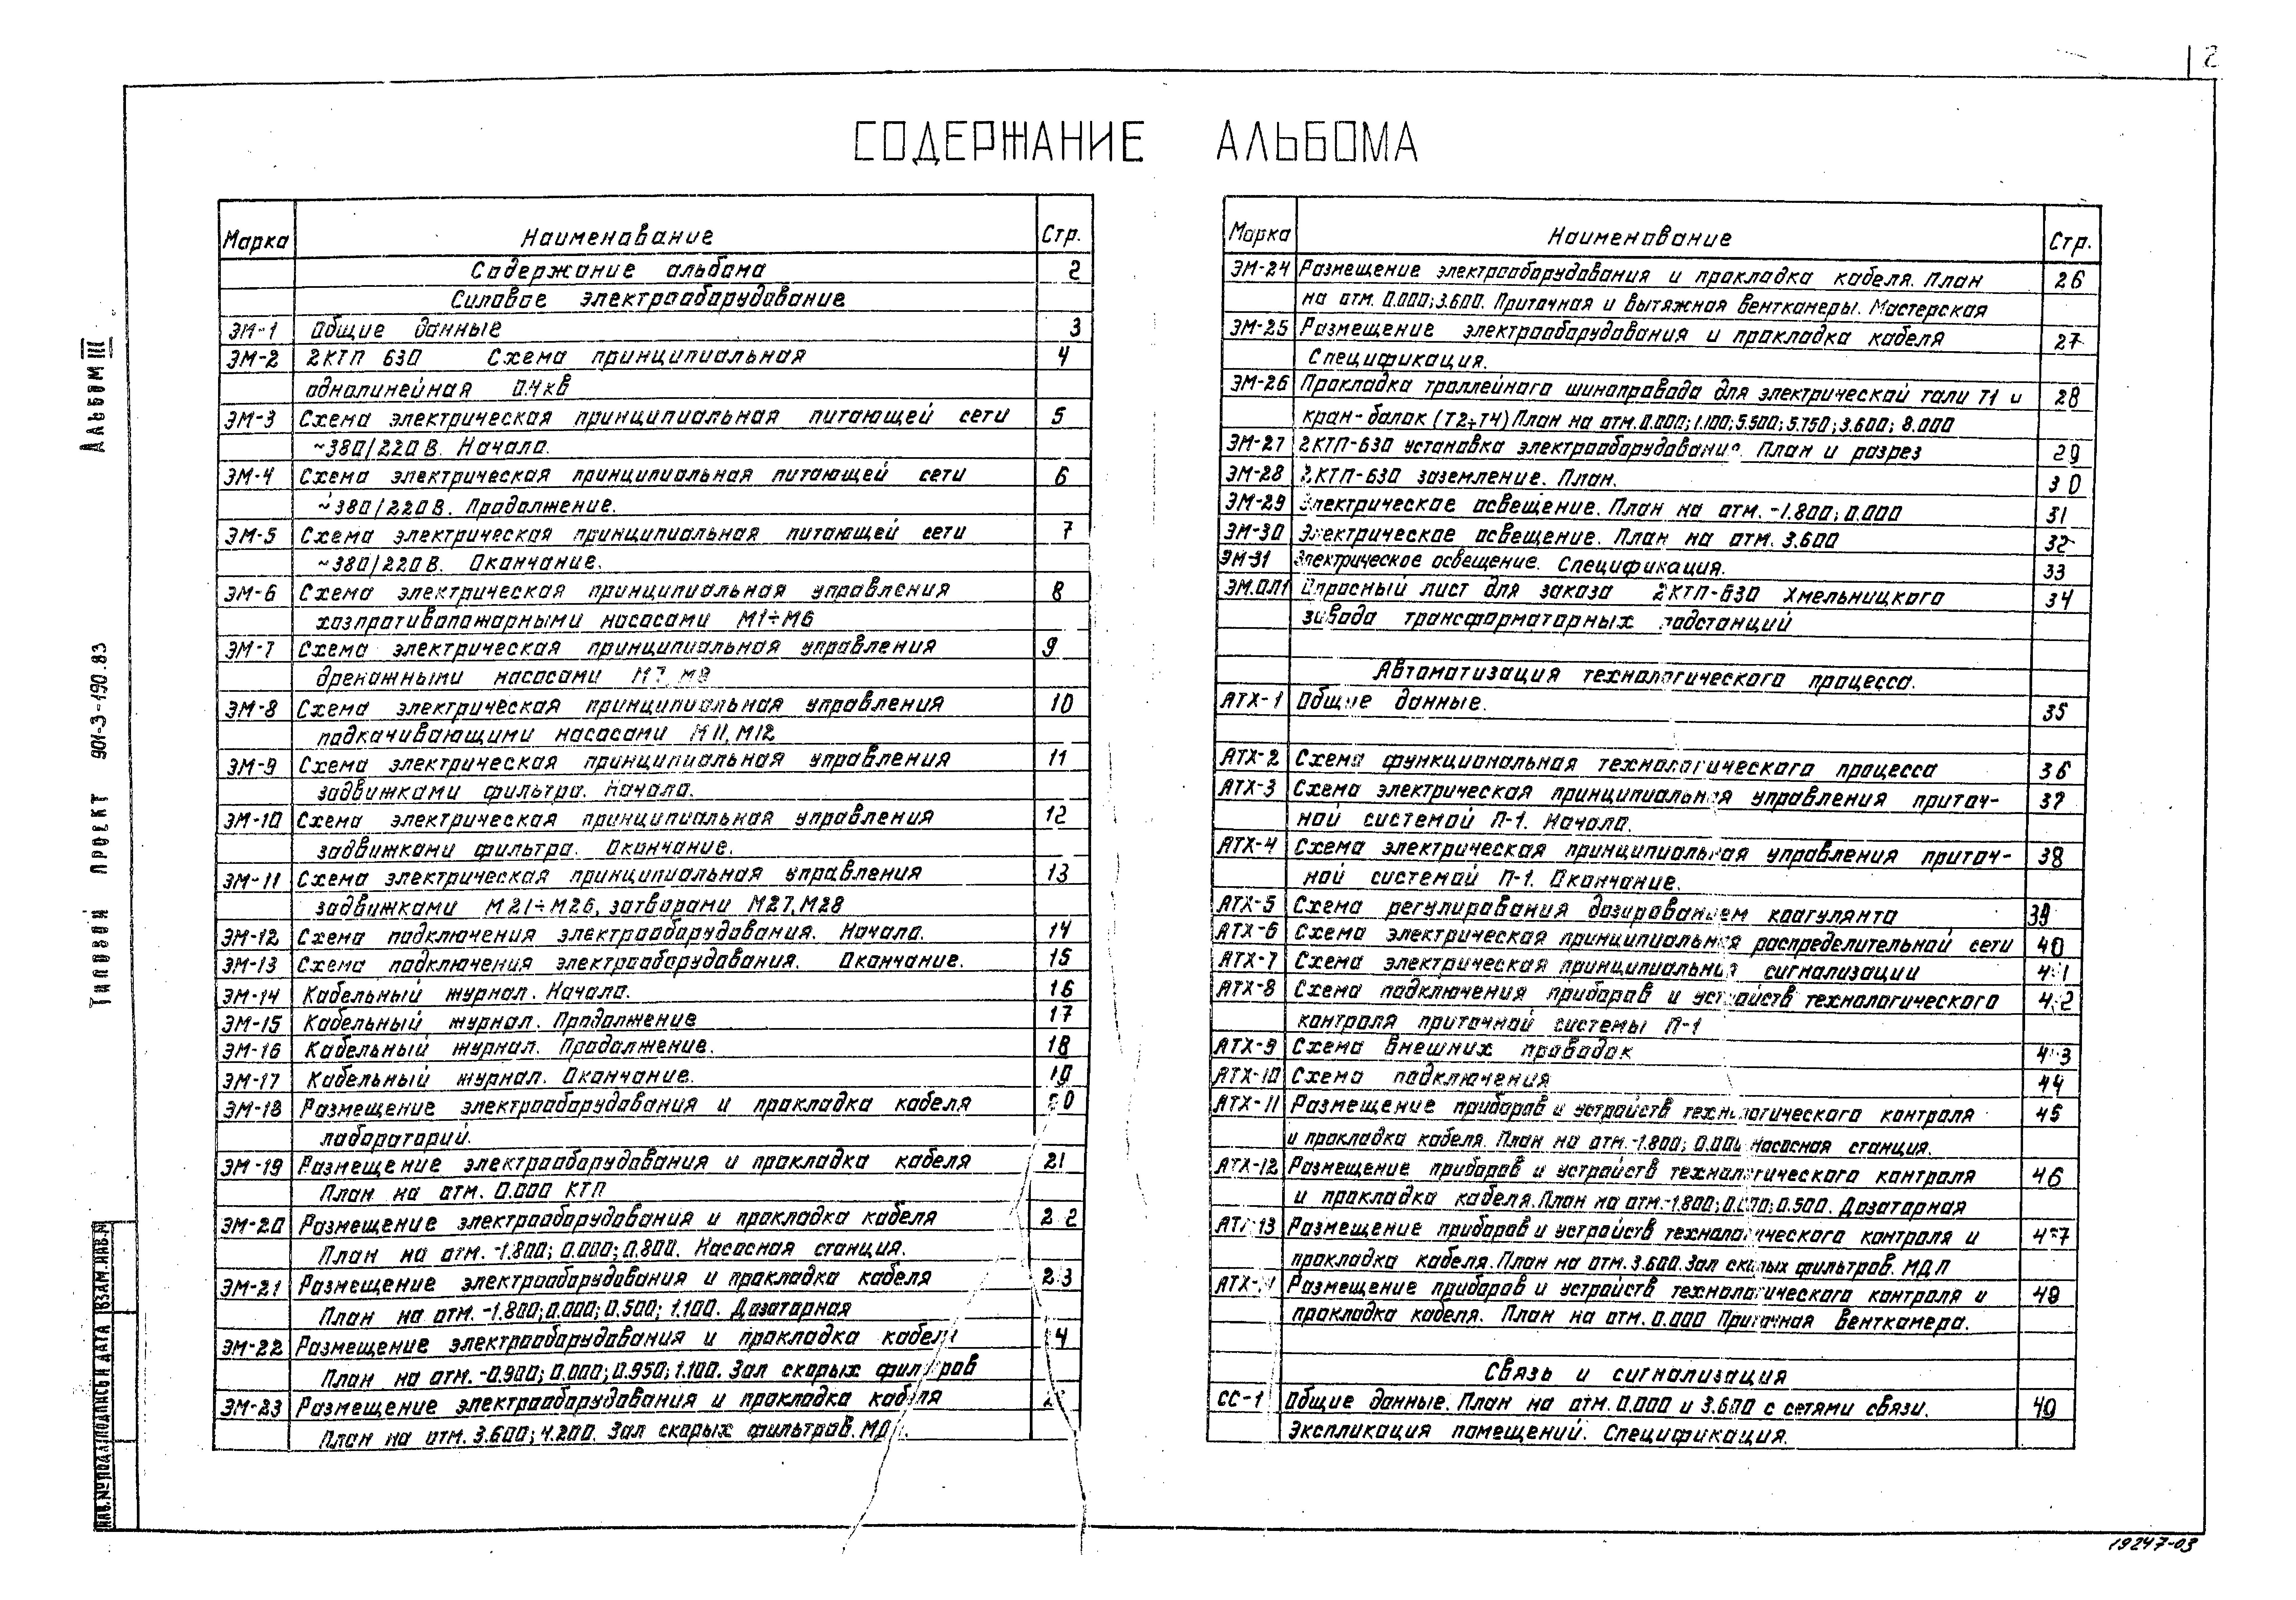 2
СОДЕРЖАНИЕ АЛЬБОМА
Марка Наименование Стр.
Содержание альбома 2
Силовое электрооборудование
ЭМ-1 Общие данные 3
ЭМ-2 2КТП 630 Схема принципиальная 4
однолинейная 0.4кв
ЭМ-3 Схема электрическая принципиальная питающей сети 5
~380/220 В. Начало.
ЭМ-4 Схема электрическая принципиальная питающей сети 6
~380/220 В. Продолжение.
ЭМ-5 Схема электрическая принципиальная питающей сети 7
~380/220 В. Окончание.
ЭМ-6 Схема электрическая принципиальная управления 8
хозпротивопожарными насосами М1÷М6
ЭМ-7 Схема электрическая принципиальная управления 9
дренажными насосами М7,
ЭМ-8 Схема электрическая принципиальная управления 10
подкачивающими насосами М11, М12
ЭМ-9 Схема электрическая принципиальная управления 11
задвижками фильтра. Начало.
ЭМ-10 Схема электрическая принципиальная управления 12
задвижками фильтра. Окончание.
ЭМ-11 Схема электрическая принципиальная управления 13
задвижками М21÷М26, затворами М27, М28
ЭМ-12 Схема подключения электрооборудования. Начало. 14
ЭМ-13 Схема подключения электрооборудования. Окончание. 15
ЭМ-14 Кабельный журнал. Начало. 16
ЭМ-15 Кабельный журнал. Продолжение 17
ЭМ-16 Кабельный журнал. Продолжение. 18
ЭМ-17 Кабельный журнал. Окончание. 19
ЭМ-18 Размещение электрооборудования и прокладка кабеля 20
лабораторий.
ЭМ-19 Размещение электрооборудования и прокладка кабеля 21
План на отм. 0.000 КТП
ЭМ-20 Размещение электрооборудования и прокладка кабеля 22
План на отм. -1.800; 0.000; 0.800. Насосная станция.
ЭМ-21 Размещение электрооборудования и прокладка кабеля 23
План на отм. -1.800; 0.000; 0.500; 1.100. Дозаторная
ЭМ-22 Размещение электрооборудования и прокладка кабеля
План на отм. -0.900; 0.000; 0.950; 1.100. Зал скорых фильтров
ЭМ-23 Размещение электрооборудования и прокладка кабеля
План на отм. 3.600; 4.200. Зал скорых фильтров.
Марка Наименование Стр.
ЭМ-24 Размещение электрооборудования и прокладка кабеля. План 26
на отм. 0.000; 3.600. Приточная и вытяжная венткамеры. Мастерская
ЭМ-25 Размещение электрооборудования и прокладка кабеля 27
Спецификация.
ЭМ-26 Прокладка троллейного шинопровода для электрической тали Т1 и 28
кран-балок (Т2÷Т4) План на отм. 0.000; 1.100; 5.500; 5.750; 3.600; 8.000
ЭМ-27 2КТП-630 установка электрооборудования. План и разрез 29
ЭМ-28 2КТП-630 заземление. План. 30
ЭМ-29 Электрическое освещение. План на отм. -1.800; 0.000 31
ЭМ-30 Электрическое освещение. План на отм. 3.600 32
ЭМ-31 Электрическое освещение. Спецификация. 33
ЭМ.ОЛ1 Опросный лист для заказа 2КТП-630 Хмельницкого 34
завода трансформаторных подстанций
Автоматизация технологического процесса.
АТХ-1 Общие данные. 35
АТХ-2 Схема функциональная технологического процесса 36
АТХ-3 Схема электрическая принципиальная управления приточ- 37
ной системой П-1. Начало.
АТХ-4 Схема электрическая принципиальная управления приточ- 38
ной системой П-1. Окончание.
АТХ-5 Схема регулирования дозированием коагулянта 39
АТХ-6 Схема электрическая принципиальная распределительной сети 40
АТХ-7 Схема электрическая принципиальная сигнализации 41
АТХ-8 Схема подключения приборов и устройств технологического 42
контроля приточной системы П-1
АТХ-9 Схема внешних проводок 43
АТХ-10 Схема подключения 44
АТХ-11 Размещение приборов и устройств технологического контроля 45
и прокладка кабеля. План на отм. -1.800; 0.000 Насосная станция.
АТХ-12 Размещение приборов и устройств технологического контроля 46
и прокладка кабеля. План на отм. -1.800; 0.000; 0.500. Дозаторная
АТХ-13 Размещение приборов и устройств технологического контроля и 47
прокладка кабеля. План на отм. 3.600. Зал скорых фильтров. МДП
АТХ-14 Размещение приборов и устройств технологического контроля и 48
прокладка кабеля. План на отм. 0.000 Приточная венткамера.
Связь и сигнализация
СС-1 Общие данные. План на отм. 0.000 и 3.600 с сетями связи. 49
Экспликация помещений. Спецификация.
Типовой проект 901-3-190.83 Альбом III
ИНВ.№ ПОДЛ. ПОДПИСЬ И ДАТА ВЗАМ.ИНВ.№
19247-03